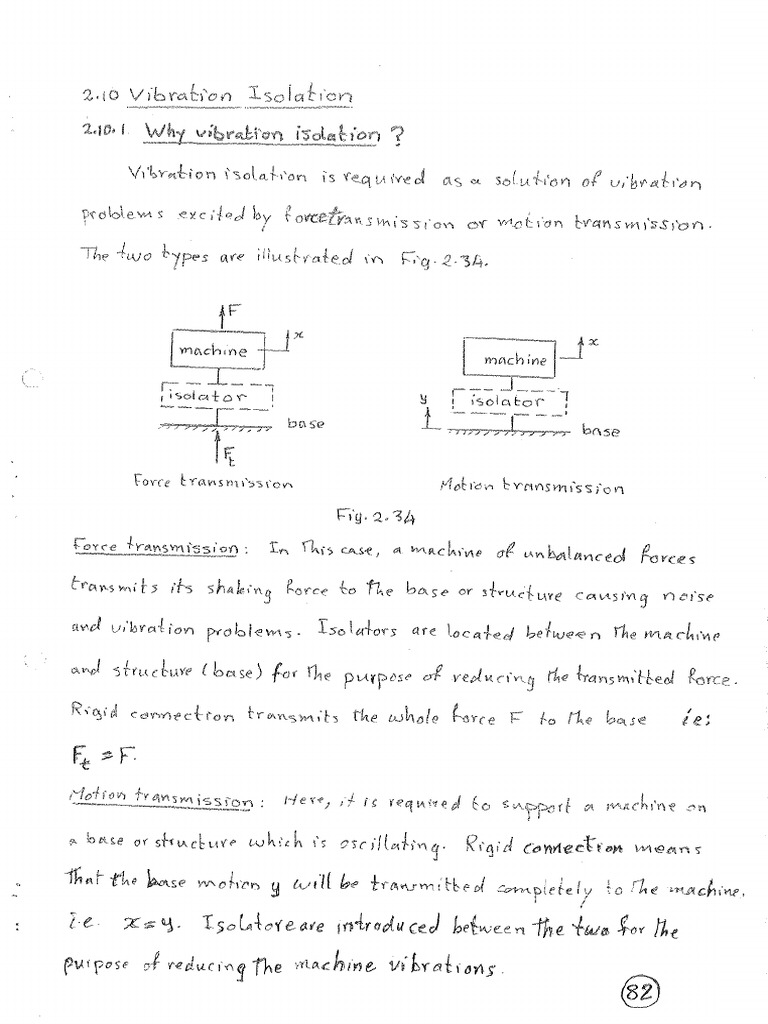 2.10 Vibration Isolation
2.10.1. Why vibration isolation?
Vibration isolation is required as a solution of vibration
problems excited by force transmission or motion transmission.
The two types are illustrated in Fig. 2.34.
F
x
machine
isolator
base
Ft
Force transmission
x
machine
y
isolator
base
Motion transmission
Fig. 2.34
Force transmission: In this case, a machine of unbalanced forces
transmits its shaking force to the base or structure causing noise
and vibration problems. Isolators are located between the machine
and structure (base) for the purpose of reducing the transmitted force.
Rigid connection transmits the whole force F to the base ie:
Ft = F.
Motion transmission: Here, it is required to support a machine on
a base or structure which is oscillating. Rigid connection means
that the base motion y will be transmitted completely to the machine.
i.e. x = y. Isolatore are introduced between the two for the
purpose of reducing the machine vibrations.
82